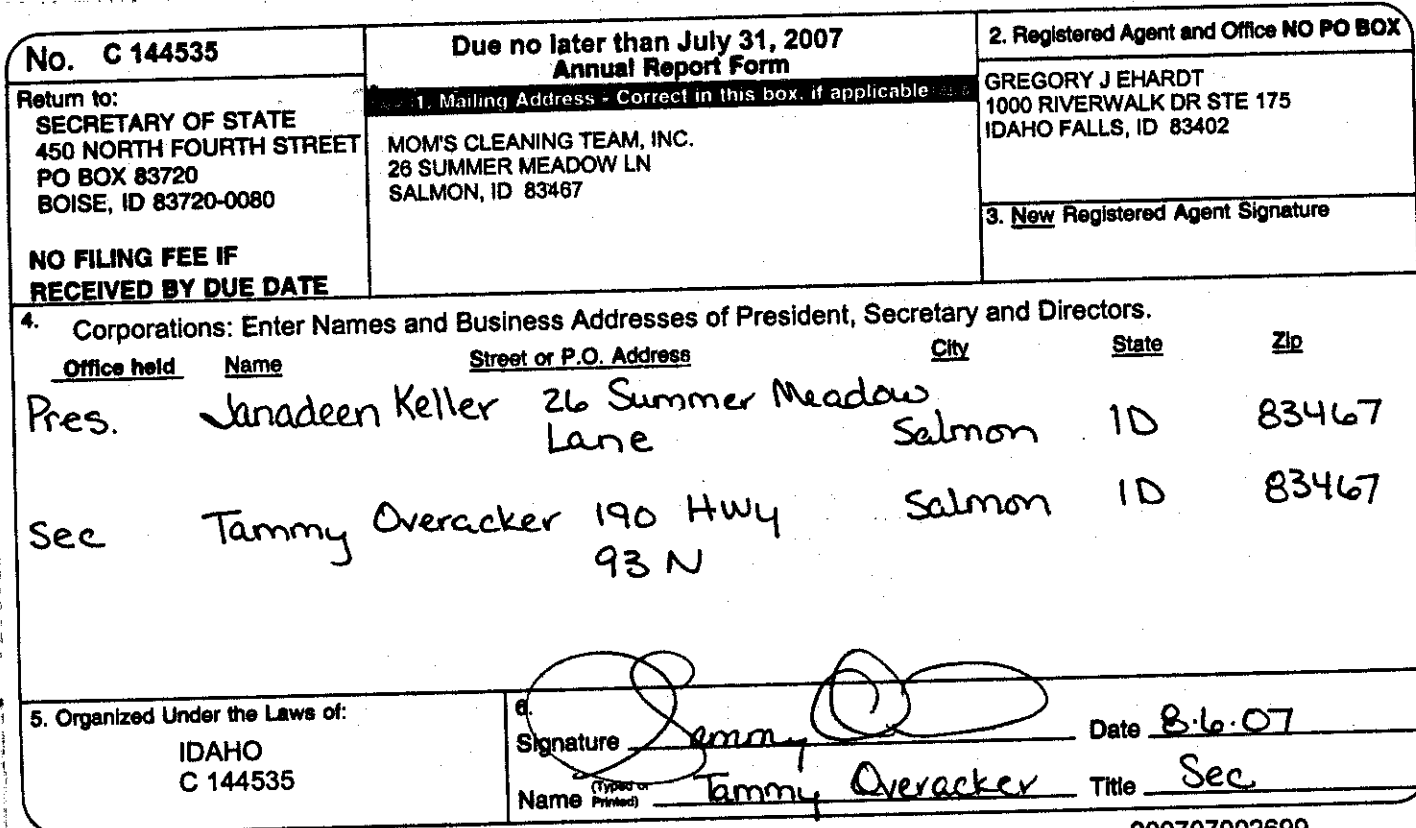 No. C 144535
Return to:
SECRETARY OF STATE
450 NORTH FOURTH STREET
PO BOX 83720
BOISE, ID 83720-0080
NO FILING FEE IF
RECEIVED BY DUE DATE
Due no later than July 31, 2007
Annual Report Form
1. Mailing Address - Correct in this box, if applicable
MOM'S CLEANING TEAM, INC.
26 SUMMER MEADOW LN
SALMON, ID 83467
2. Registered Agent and Office NO PO BOX
GREGORY J EHARDT
1000 RIVERWALK DR STE 175
IDAHO FALLS, ID 83402
3. New Registered Agent Signature
4. Corporations: Enter Names and Business Addresses of President, Secretary and Directors.
Office held Name Street or P.O. Address City State Zip
Pres. Janadeen Keller 26 Summer Meadow
Lane Salmon ID 83467
Sec Tammy Overacker 190 Hwy Salmon ID 83467
93 N
5. Organized Under the Laws of:
IDAHO
C 144535
6.
Signature Tammy Date 8.6.07
Name (Typed or Printed) Tammy Overacker Title Sec